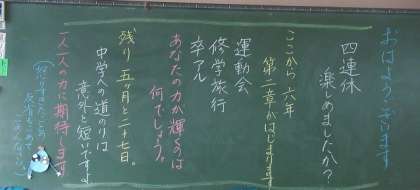 おはようございます
四連休
楽しめましたか?
ここから六年
第二章がはじまります
運動会
修学旅行
卒アル
あなたの力が輝くのは
何でしょう。
残り五ヶ月と二十七日。
中学への道のりは
意外と短いですよ
一人一人の力に期待します